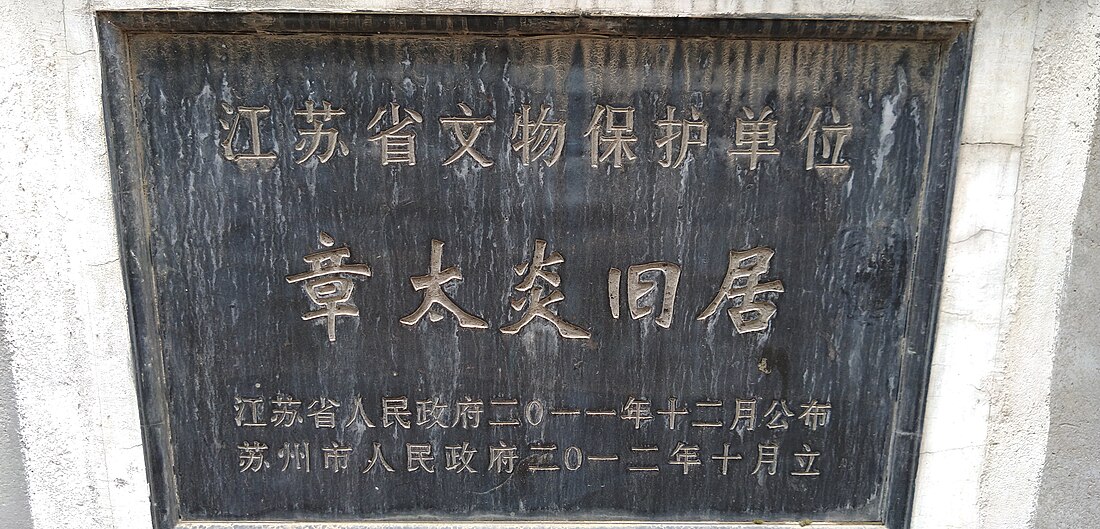 江苏省文物保护单位
章太炎旧居
江苏省人民政府二0一一年十二月公布
苏州市人民政府二0一二年十月立